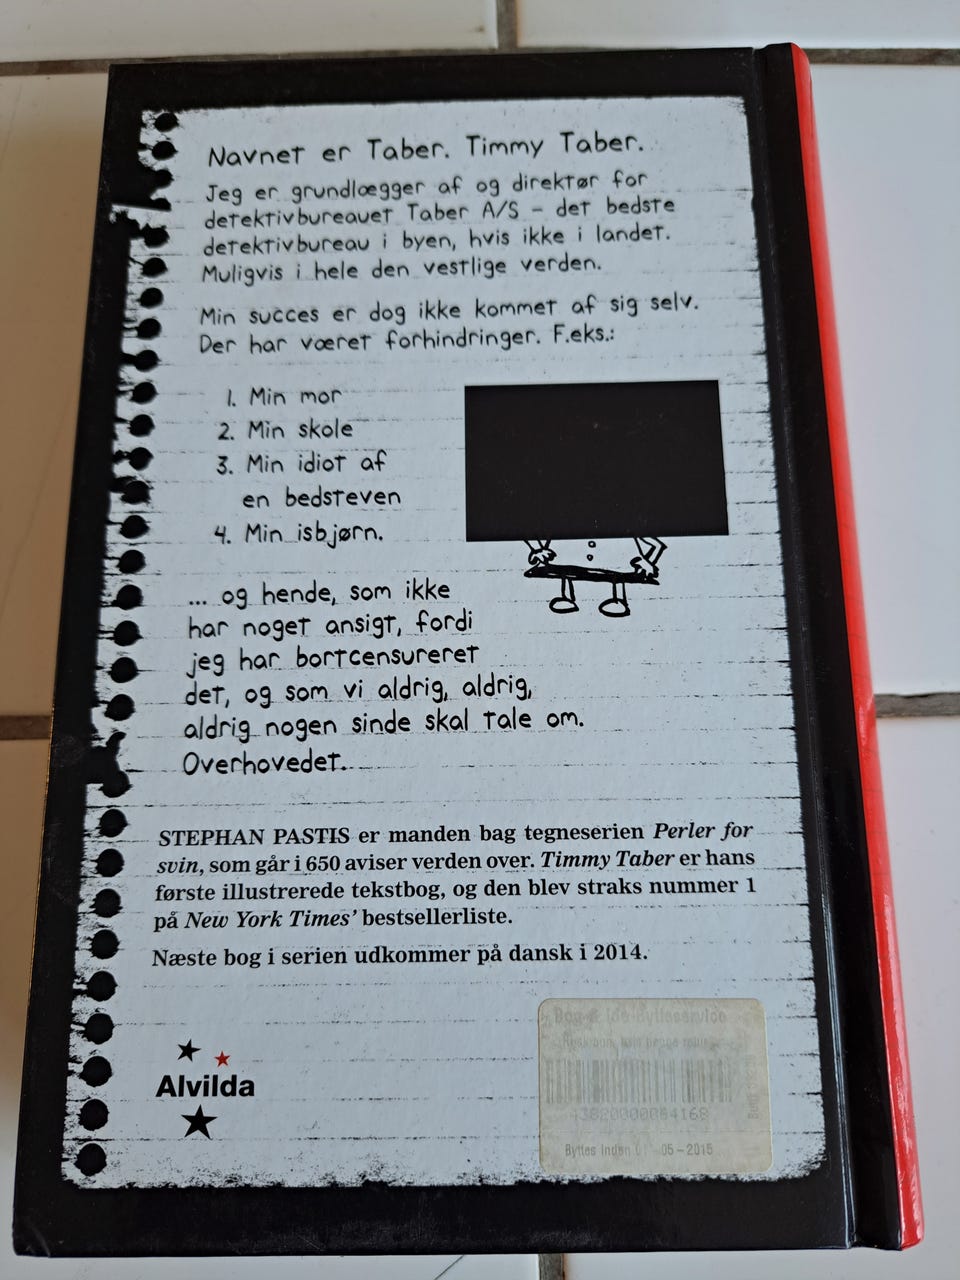 Navnet er Taber. Timmy Taber.
Jeg er grundlægger af og direktør for
detektivbureauet Taber A/S – det bedste
detektivbureau i byen, hvis ikke i landet.
Muligvis i hele den vestlige verden.
Min succes er dog ikke kommet af sig selv.
Der har været forhindringer. F.eks.:
1. Min mor
2. Min skole
3. Min idiot af
en bedsteven
4. Min isbjørn.
... og hende, som ikke
har noget ansigt, fordi
jeg har bortcensureret
det, og som vi aldrig, aldrig,
aldrig nogen sinde skal tale om.
Overhovedet.
STEPHAN PASTIS er manden bag tegneserien Perler for
svin, som går i 650 aviser verden over. Timmy Taber er hans
første illustrerede tekstbog, og den blev straks nummer 1
på New York Times' bestsellerliste.
Næste bog i serien udkommer på dansk i 2014.
Alvilda
Bog & Ide Bytteservice
Byttes inden 01-05-2015